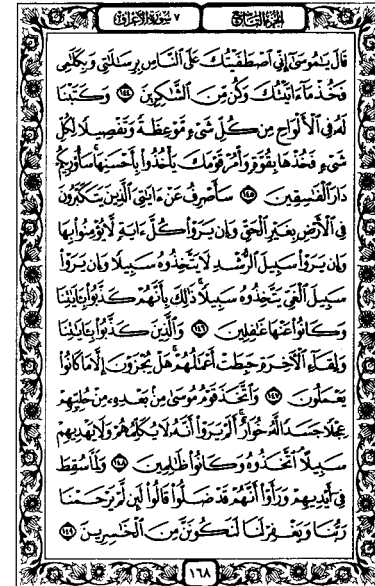 الجُزْءُ التَّاسِعُ ٧ سُورَةُ الأَعْرَافِ
قَالَ يَٰمُوسَىٰٓ إِنِّي ٱصْطَفَيْتُكَ عَلَى ٱلنَّاسِ بِرِسَٰلَٰتِي وَبِكَلَٰمِي
فَخُذْ مَآ ءَاتَيْتُكَ وَكُن مِّنَ ٱلشَّٰكِرِينَ ١٤٤ وَكَتَبْنَا
لَهُۥ فِي ٱلْأَلْوَاحِ مِن كُلِّ شَيْءٍ مَّوْعِظَةً وَتَفْصِيلًا لِّكُلِّ
شَيْءٍ فَخُذْهَا بِقُوَّةٍ وَأْمُرْ قَوْمَكَ يَأْخُذُوا۟ بِأَحْسَنِهَا ۚ سَأُو۟رِيكُمْ
دَارَ ٱلْفَٰسِقِينَ ١٤٥ سَأَصْرِفُ عَنْ ءَايَٰتِيَ ٱلَّذِينَ يَتَكَبَّرُونَ
فِي ٱلْأَرْضِ بِغَيْرِ ٱلْحَقِّ وَإِن يَرَوْا۟ كُلَّ ءَايَةٍ لَّا يُؤْمِنُوا۟ بِهَا
وَإِن يَرَوْا۟ سَبِيلَ ٱلرُّشْدِ لَا يَتَّخِذُوهُ سَبِيلًا وَإِن يَرَوْا۟
سَبِيلَ ٱلْغَيِّ يَتَّخِذُوهُ سَبِيلًا ۚ ذَٰلِكَ بِأَنَّهُمْ كَذَّبُوا۟ بِـَٔايَٰتِنَا
وَكَانُوا۟ عَنْهَا غَٰفِلِينَ ١٤٦ وَٱلَّذِينَ كَذَّبُوا۟ بِـَٔايَٰتِنَا
وَلِقَآءِ ٱلْأَخِرَةِ حَبِطَتْ أَعْمَٰلُهُمْ ۚ هَلْ يُجْزَوْنَ إِلَّا مَا كَانُوا۟
يَعْمَلُونَ ١٤٧ وَٱتَّخَذَ قَوْمُ مُوسَىٰ مِنۢ بَعْدِهِۦ مِنْ حُلِيِّهِمْ
عِجْلًا جَسَدًا لَّهُۥ خُوَارٌ ۚ أَلَمْ يَرَوْا۟ أَنَّهُۥ لَا يُكَلِّمُهُمْ وَلَا يَهْدِيهِمْ
سَبِيلًا ۘ ٱتَّخَذُوهُ وَكَانُوا۟ ظَٰلِمِينَ ١٤٨ وَلَمَّا سُقِطَ
فِيٓ أَيْدِيهِمْ وَرَأَوْا۟ أَنَّهُمْ قَدْ ضَلُّوا۟ قَالُوا۟ لَئِن لَّمْ يَرْحَمْنَا
رَبُّنَا وَيَغْفِرْ لَنَا لَنَكُونَنَّ مِنَ ٱلْخَٰسِرِينَ ١٤٩
١٦٨